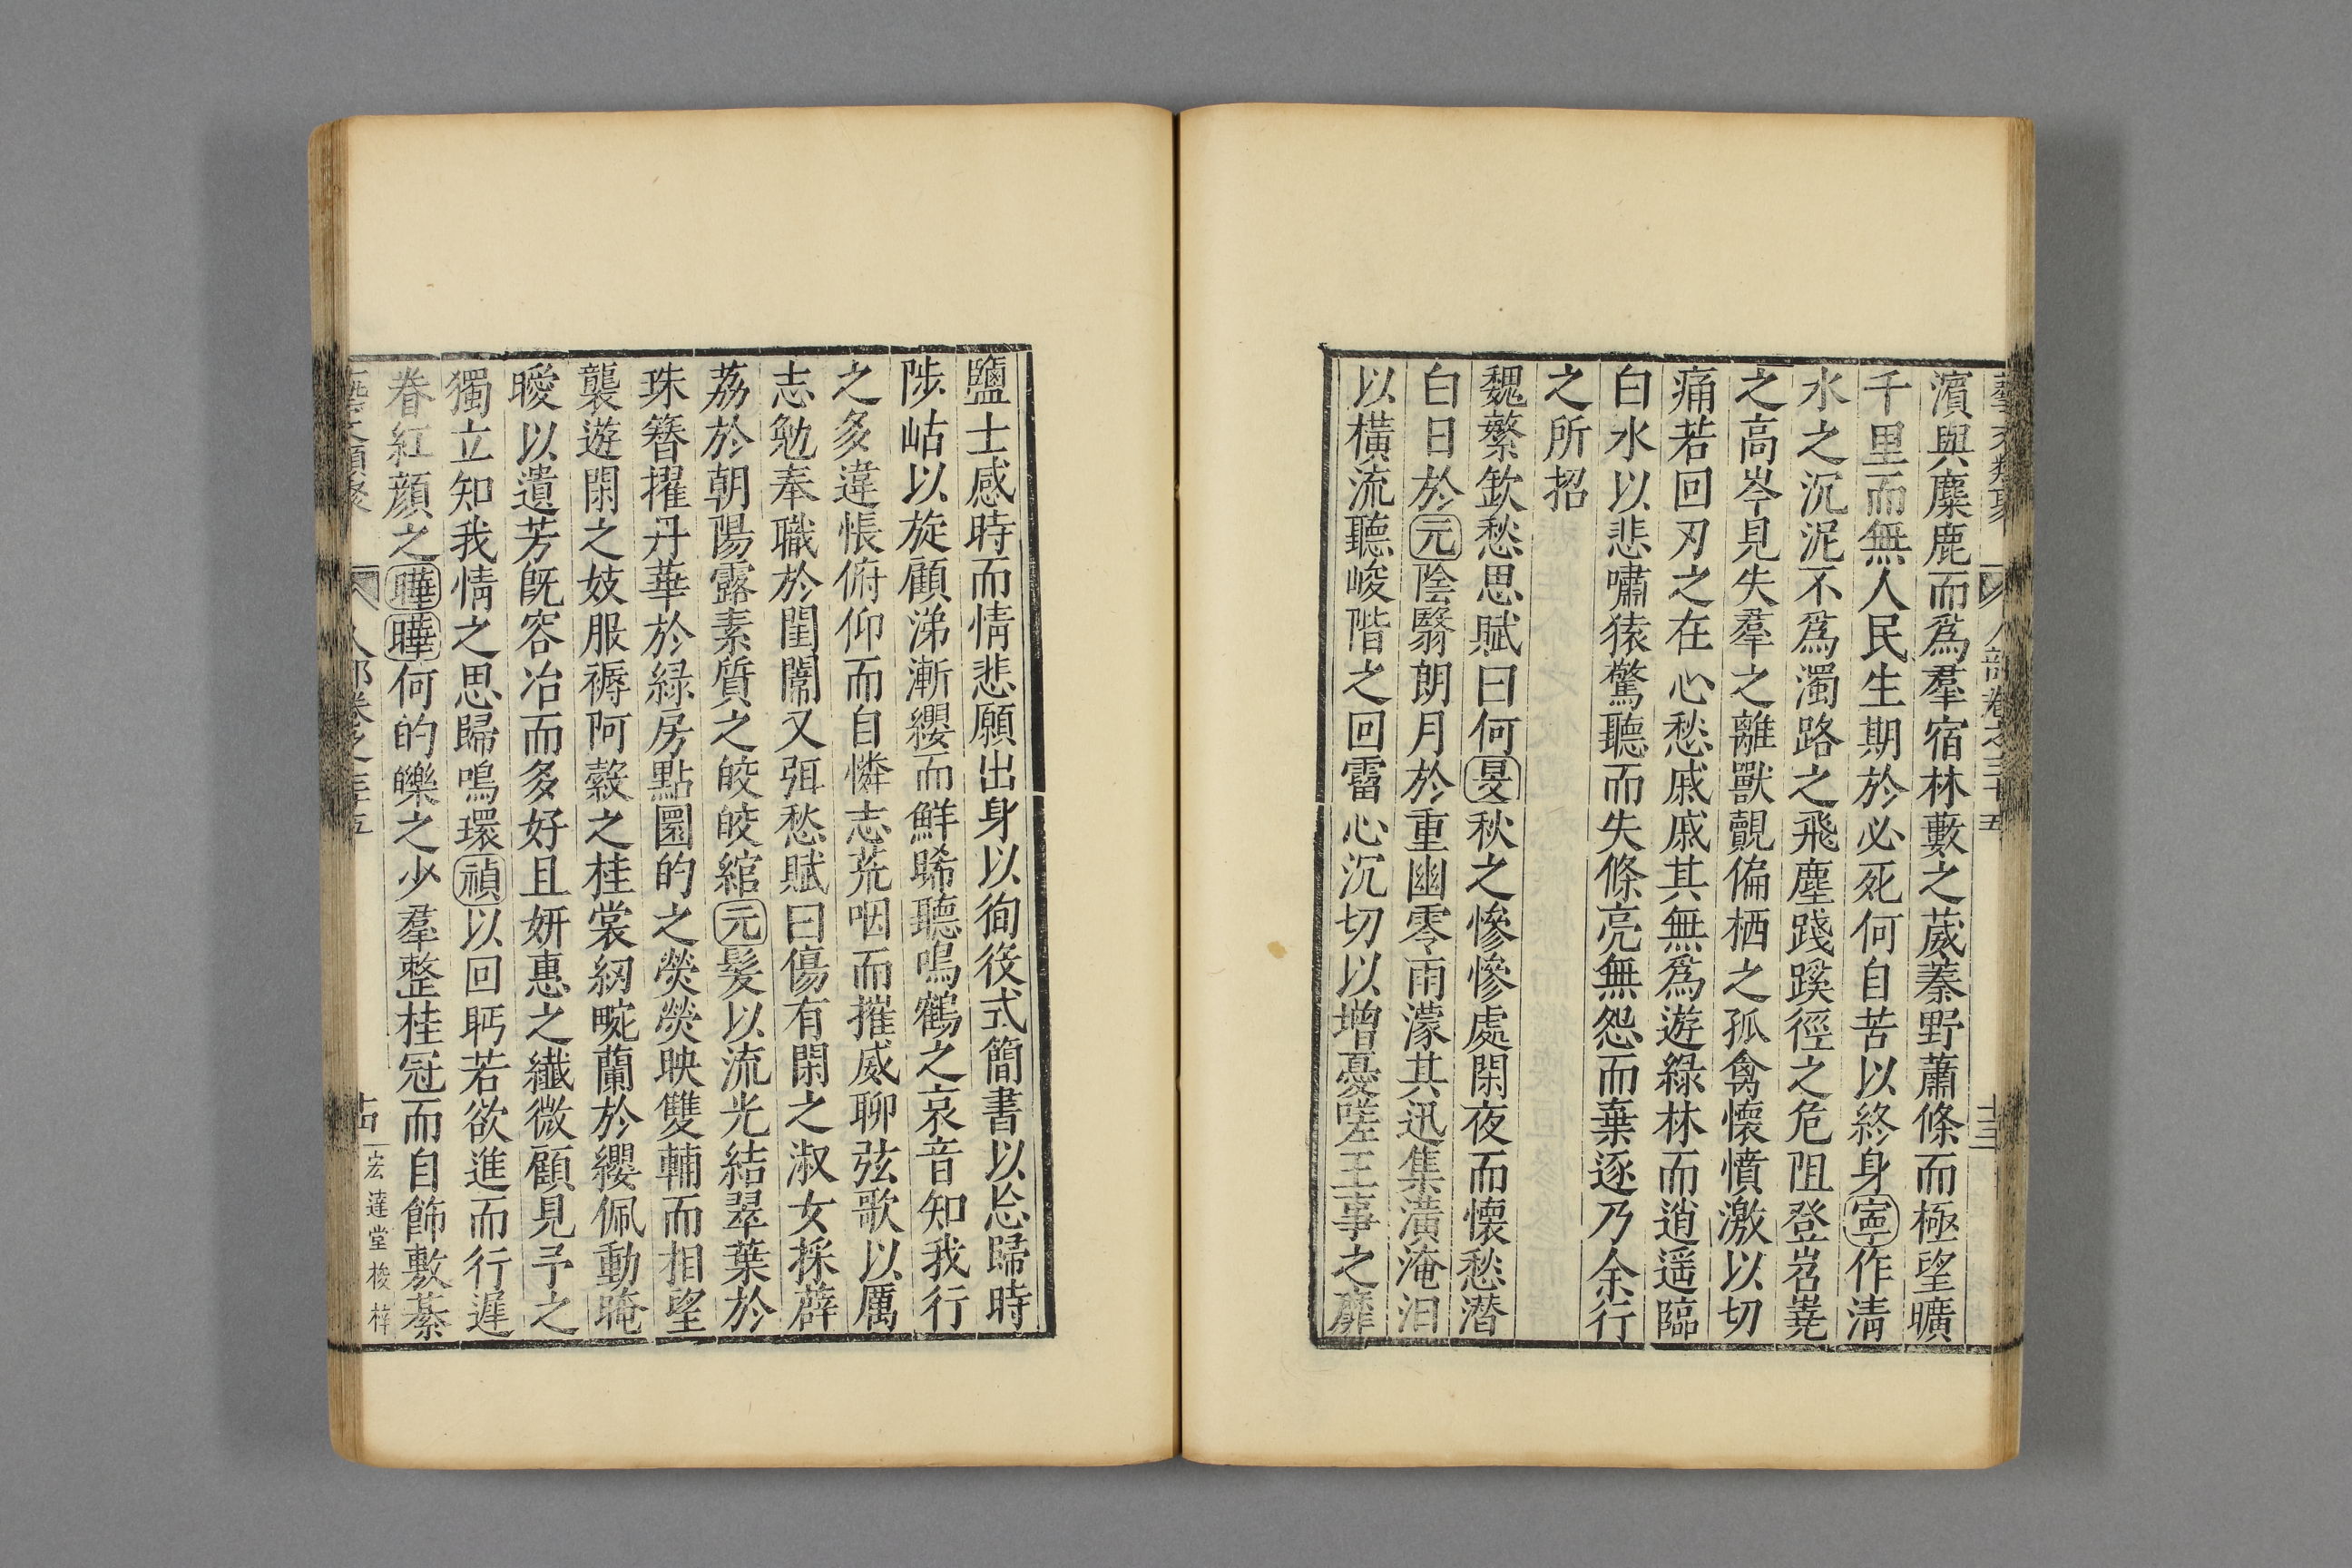 藝文類聚 人部卷之三十五 十三
濵與麋鹿而爲羣宿林藪之葳蓁野蕭條而極望曠
千里而無人民生期於必死何自苦以終身寍作清
水之沉泥不爲濁路之飛塵踐蹊徑之危阻登岧嶤
之高岑見失羣之離獸覩偏栖之孤禽懷憤激以切
痛若回刃之在心愁戚戚其無爲遊綠林而逍遥臨
白水以悲嘯猿驚聽而失條亮無怨而棄逐乃余行
之所招
魏繁欽愁思賦曰何旻秋之慘慘處閑夜而懷愁潛
白日於元陰翳朗月於重幽零雨濛其迅集潢淹汩
以橫流聽峻階之回霤心沉切以增憂嗟王事之靡
鹽士感時而情悲願出身以徇役式簡書以忩歸時
陟岵以旋顧涕漸纓而鮮晞聽鳴鶴之哀音知我行
之多違悵俯仰而自憐志荒咽而摧威聊弦歌以厲
志勉奉職於閨闈又弭愁賦曰傷有閑之淑女採薜
荔於朝陽露素質之皎皎綰元髮以流光結翠葉於
珠簪擢丹華於緑房點圜的之熒熒映雙輔而相望
襲遊閑之妓服褥阿縠之桂裳紉畹蘭於纓佩動晻
曖以遺芳既容冶而多好且妍惠之纖微顧見予之
獨立知我情之思歸鳴環禎以回眄若欲進而行遲
眷紅顔之曄曄何的皪之少羣整桂冠而自飾敷綦
藝文類聚 人部卷之三十五 十四 宏達堂梭梓